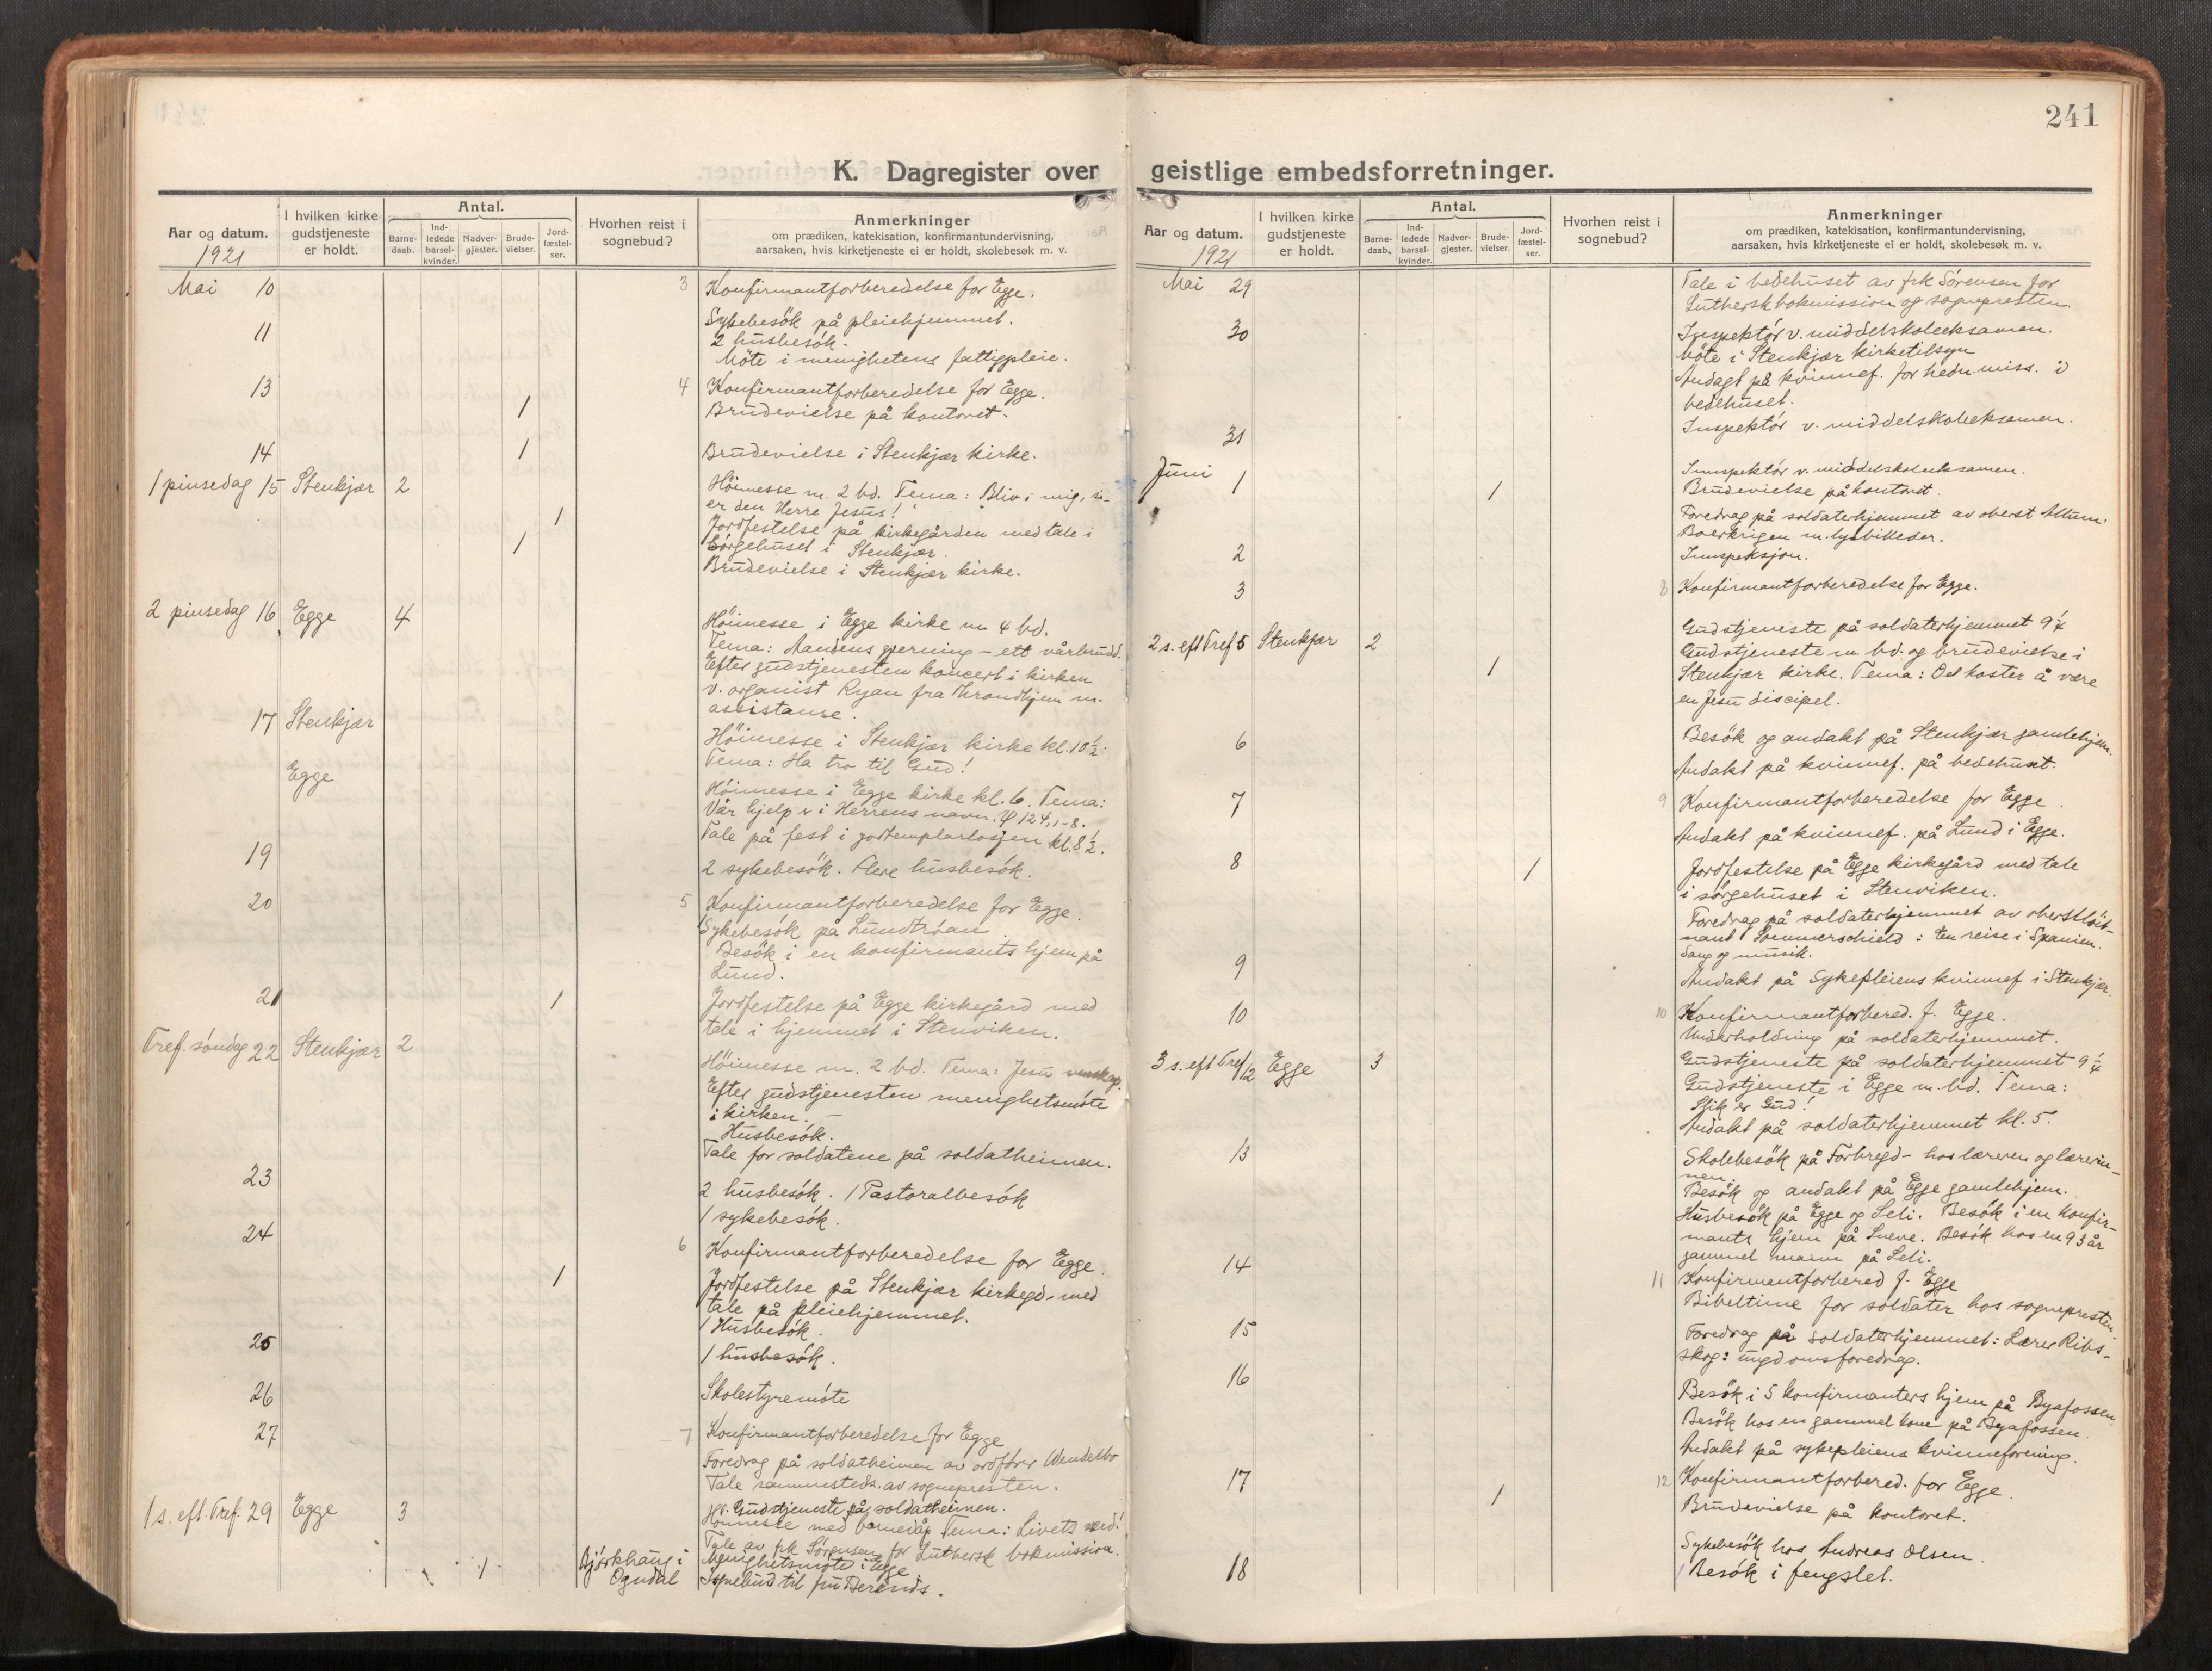 241
K. Dagregister over geistlige embedsforretninger.
Aar og datum.
1921
I hvilken kirke gudstjeneste er holdt.
Antal.
Barne-daab.
Ind-ledede barsel-kvinder.
Nadver-gjester.
Brude-vielser.
Jord-fæstel-ser.
Hvorhen reist i sognebud?
Anmerkninger
om prædiken, katekisation, konfirmantundervisning,
aarsaken, hvis kirketjeneste ei er holdt, skolebesøk m. v.
Mai 10 3 Konfirmantforberedelse for Egge.
Sykebesök på pleiehjemmet.
11 2 husbesök.
Möte i menighetens fattigpleie.
13 4 Konfirmantforberedelse for Egge.
1 Brudevielse på kontoret.
14 1 Brudevielse i Stenkjær kirke.
1 pinsedag 15 Stenkjær 2 Höimesse m. 2 bd. Tema: Bliv i mig, si-
er den Herre Jesus!
1 Jordfestelse på kirkegården med tale i
sörgehuset i Stenkjær.
1 Brudevielse i Stenkjær kirke.
2 pinsedag 16 Egge 4 Höimesse i Egge kirke m 4 bd.
Tema: Aandens gjerning – ett vårbrudd.
Efter gudstjenesten koncert i kirken
v. organist Ryan fra Throndhjem m.
assistanse.
17 Stenkjær Höimesse i Stenkjær kirke kl. 10 1/2.
Tema: Ha tro til Gud!
Egge Höimesse i Egge kirke kl. 6. Tema:
Vår hjelp er i Herrens navn. ψ 124, 1-8.
Tale på fest i godtemplarlosjen kl. 8 1/2.
19 2 sykebesök. Flere husbesök.
20 5 Konfirmantforberedelse for Egge.
Sykebesök på Lundtröan
Besök i en konfirmants hjem på
Lund.
21 1 Jordfestelse på Egge kirkegård med
tale i hjemmet i Stenviken.
Tref. söndag 22 Stenkjær 2 Höimesse m. 2 bd. Tema: Jesu venskap.
Efter gudstjenesten menighetsmöte
i kirken.
Husbesök.
Tale for soldatene på soldatheimen.
23 2 husbesök. 1 Pastoralbesök
1 sykebesök.
24 6 Konfirmantforberedelse for Egge.
1 Jordfestelse på Stenkjær kirkegd. med
tale på pleiehjemmet.
1 Husbesök.
25 1 husbesök.
26 Skolestyremöte
27 7 Konfirmantforberedelse for Egge
Foredrag på soldatheimen av ordförer Wendelbo
Tale sammesteds av sognepresten.
1 s. eft. Tref. 29 Egge 3 Gudstjeneste på soldatheimen.
Höimesse med barnedåp Tema: Livets
Tale av frk Sörensen for Luthersk bokmission.
Menighetsmöte i Egge
1 Björkhaug i Ogndal Sognebud til fru Berends.
Aar og datum.
1921
I hvilken kirke gudstjeneste er holdt.
Antal.
Barne-daab.
Ind-ledede barsel-kvinder.
Nadver-gjester.
Brude-vielser.
Jord-fæstel-ser.
Hvorhen reist i sognebud?
Anmerkninger
om prædiken, katekisation, konfirmantundervisning,
aarsaken, hvis kirketjeneste ei er holdt, skolebesøk m. v.
Mai 29 Tale i bedehuset av frk Sörensen for
Luthersk bokmission og sognepresten.
30 Inspektör v. middelskoleeksamen.
Möte i Stenkjær kirketilsyn
Andagt på kvinnef. for hedn. miss. i
bedehuset.
31 Inspektör v. middelskoleeksamen.
Juni 1 Innspektör v. middelskoleeksamen.
1 Brudevielse på kontoret.
Foredrag på soldaterhjemmet av oberst Altum:
Boerkrigen m. lysbilleder.
2 Innspeksjon.
3 8 Konfirmantforberedelse for Egge.
Gudstjeneste på soldaterhjemmet 9 1/4
2 s. eft Tref 5 Stenkjær 2 1 Gudstjeneste m bd. og brudevielse i
Stenkjær kirke. Tema: Det koster å være
en Jesu discipel.
6 Besök og andakt på Stenkjær gamlehjem.
Andakt på kvinnef. på bedehuset.
7 9 Konfirmantforberedelse for Egge.
Andakt på kvinnef. på Lund i Egge.
8 1 Jordfestelse på Egge kirkegård med tale
i sörgehuset i Stenviken.
Foredrag på soldaterhjemmet av oberstlöit-
nant Sommerschield: En reise i Spanien.
Sang og musik.
9 Andakt på Sykepleiens kvinnef i Stenkjær.
10 10 Konfirmantforbered. f. Egge.
Underholdning på soldaterhjemmet.
Gudstjeneste på soldaterhjemmet 9 1/4
3 s. eft Tref 12 Egge 3 Gudstjeneste i Egge m. bd. Tema:
Slik er Gud!
Andakt på soldaterhjemmet kl. 5.
13 Skolebesök på Forbregd – hos læreren og lærerin-
nen.
Besök og andakt på Egge gamlehjem.
Husbesök på Egge og Seli. Besök i en konfir-
mants hjem på Sneve. Besök hos en 93 år
gammel mann på Seli.
14 11 Konfirmantforbered f. Egge
Bibeltime for soldater hos sognepresten.
15 Foredrag på soldaterhjemmet: Lærer Ribs-
skog: ungdomsforedrag.
16 Besök i 5 konfirmanters hjem på Byafossen.
Besök hos en gammel kone på Byafossen.
Andakt på sykepleiens kvinneforening.
17 12 Konfirmantforbered. for Egge.
1 Brudevielse på kontoret.
Sykebesök hos Andreas Olsen.
18 1 Besök i fengslet.